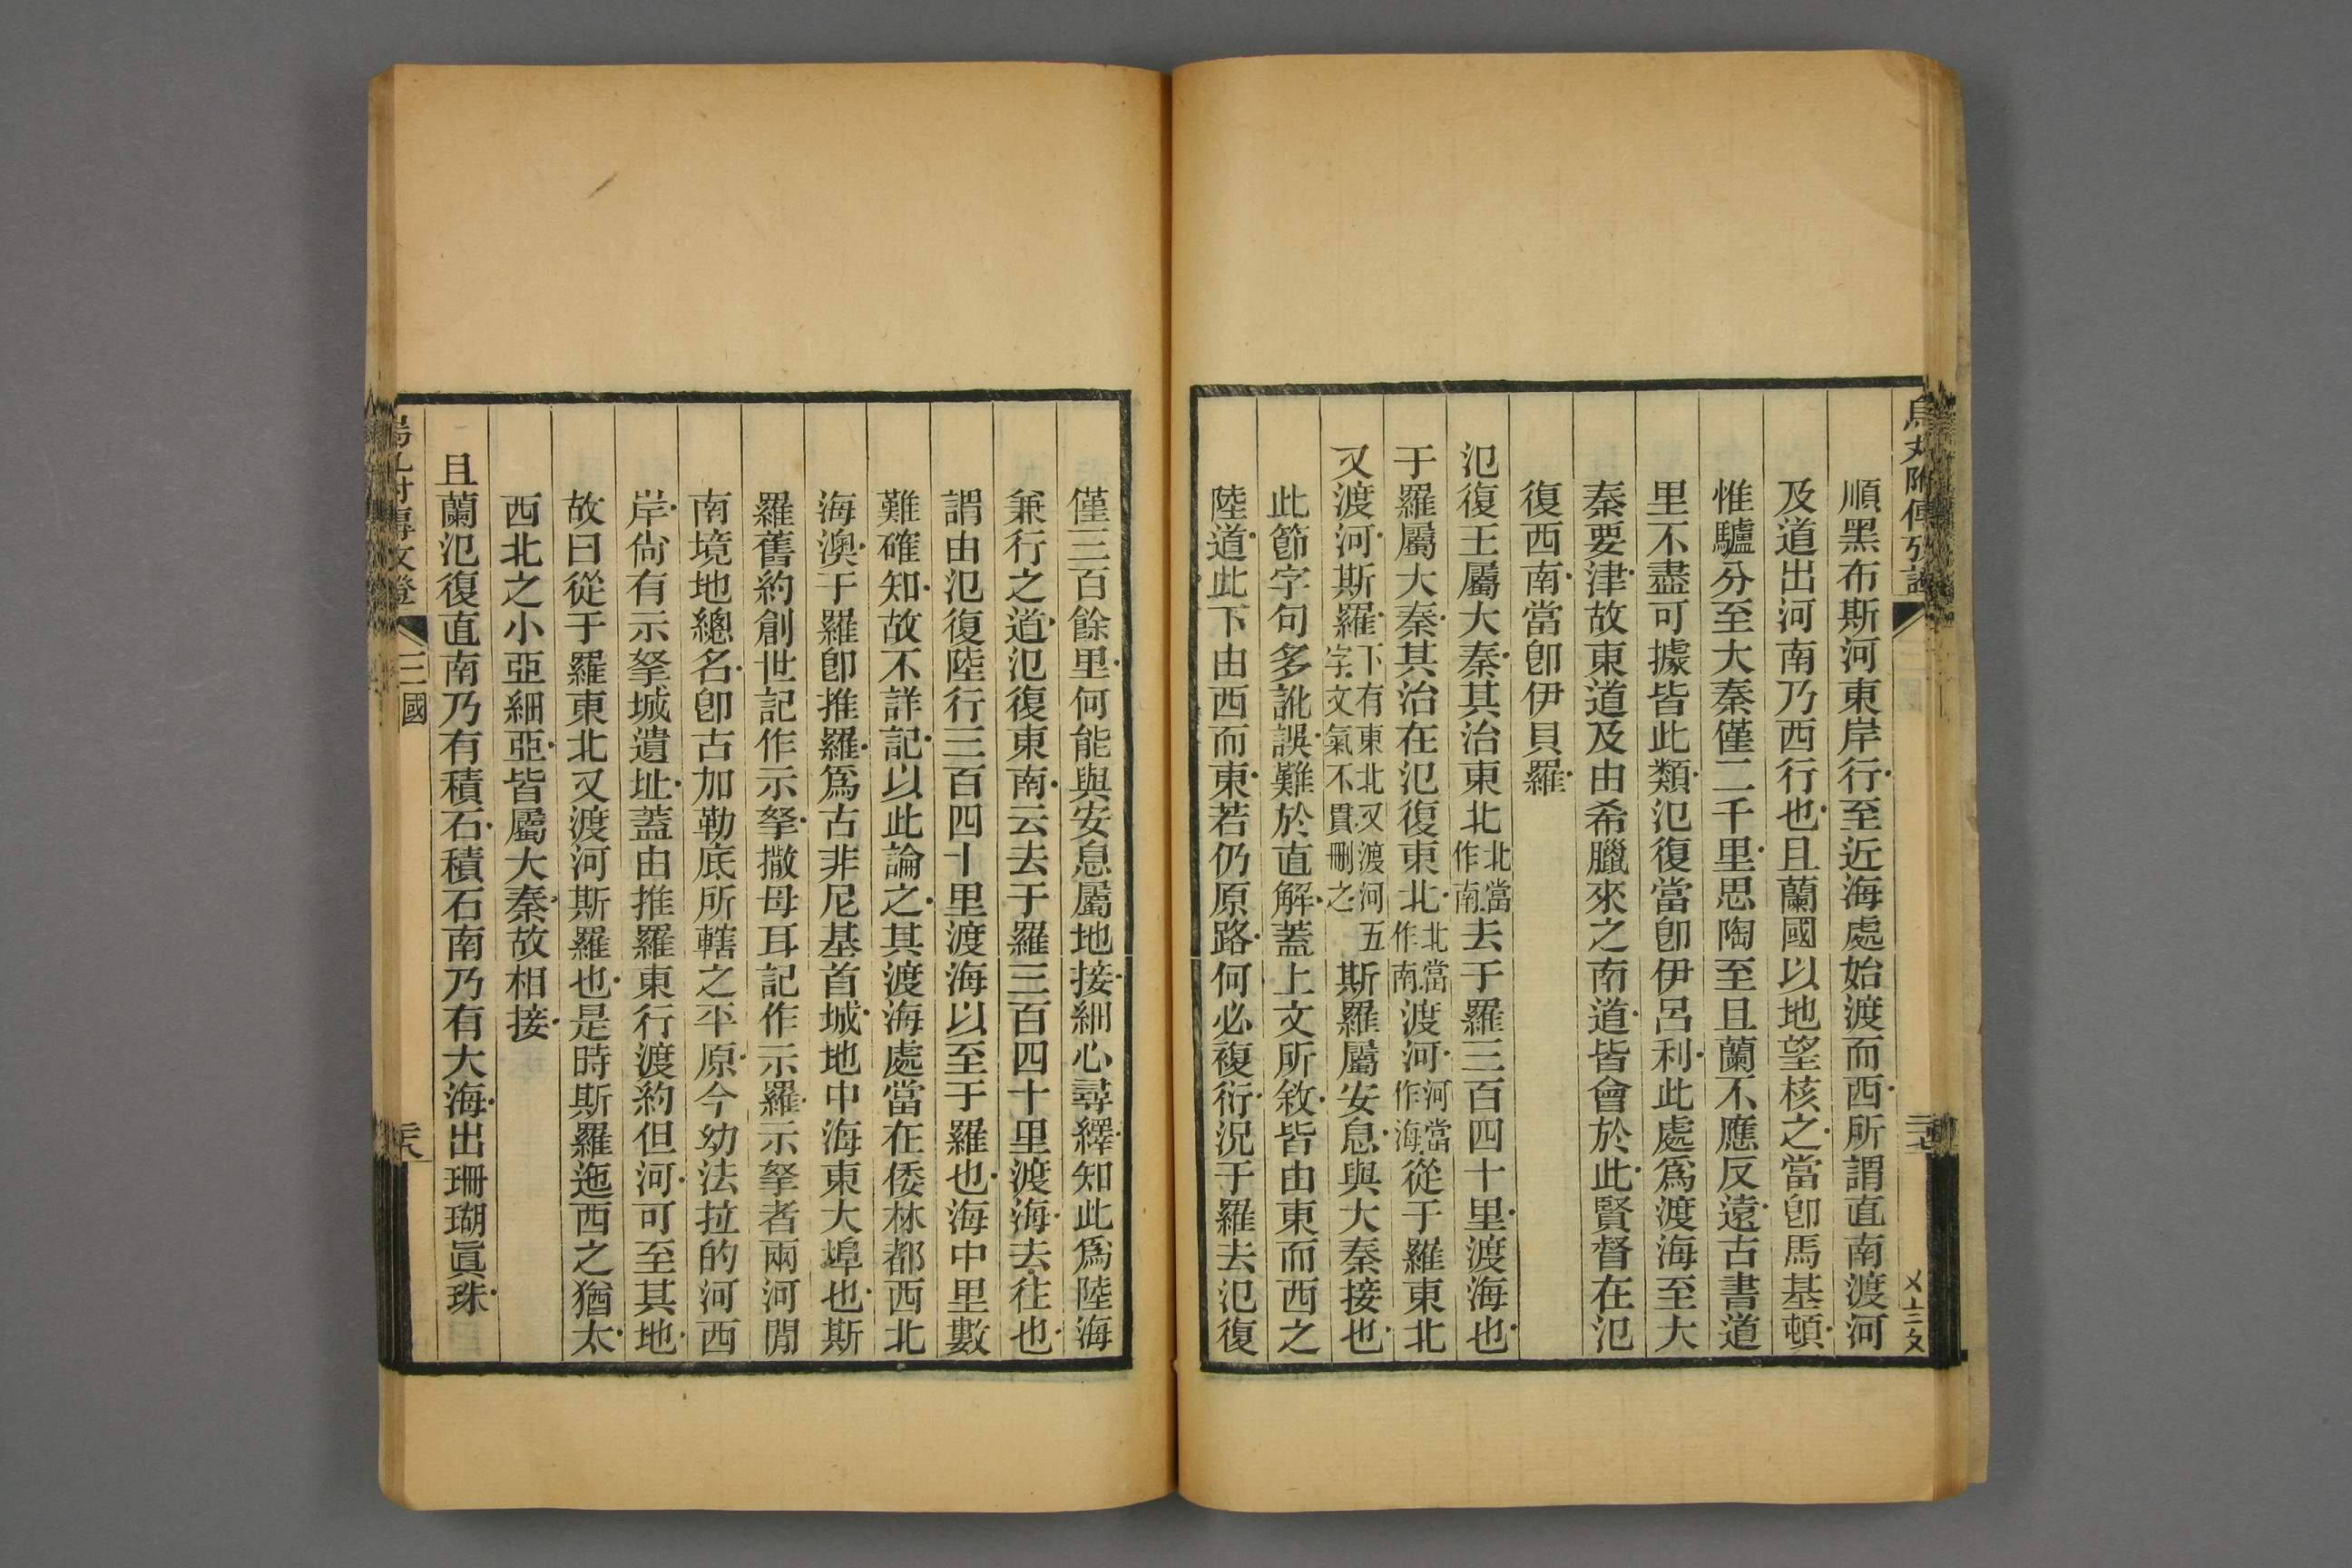 烏丸附傳攷證
順黑布斯河東岸行至近海處始渡而西所謂直南渡河
及道出河南乃西行也且蘭國以地望核之當卽馬基頓
惟驢分至大秦僅二千里思陶至且蘭不應反遠古書道
里不盡可據皆此類氾復當卽伊呂利此處爲渡海至大
秦要津故東道及由希臘來之南道皆會於此賢督在氾
復西南當卽伊貝羅
氾復王屬大秦其治東北北當作南去于羅三百四十里渡海也
于羅屬大秦其治在氾復東北北當作南渡河河當作海從于羅東北
又渡河斯羅下有東北又渡河五字文氣不貫刪之斯羅屬安息與大秦接也
此節字句多訛誤難於直解蓋上文所敘皆由東而西之
陸道此下由西而東若仍原路何必複衍況于羅去氾復
僅三百餘里何能與安息屬地接細心尋繹知此爲陸海
兼行之道氾復東南云去于羅三百四十里渡海去往也
謂由氾復陸行三百四十里渡海以至于羅也海中里數
難確知故不詳記以此論之其渡海處當在倭林都西北
海澳于羅卽推羅爲古非尼基首城地中海東大埠也斯
羅舊約創世記作示拏撒母耳記作示羅示拏者兩河閒
南境地總名卽古加勒底所轄之平原今幼法拉的河西
岸尙有示拏城遺址蓋由推羅東行渡約但河可至其地
故曰從于羅東北又渡河斯羅也是時斯羅迤西之猶太
西北之小亞細亞皆屬大秦故相接
且蘭氾復直南乃有積石積石南乃有大海出珊瑚眞珠
三國